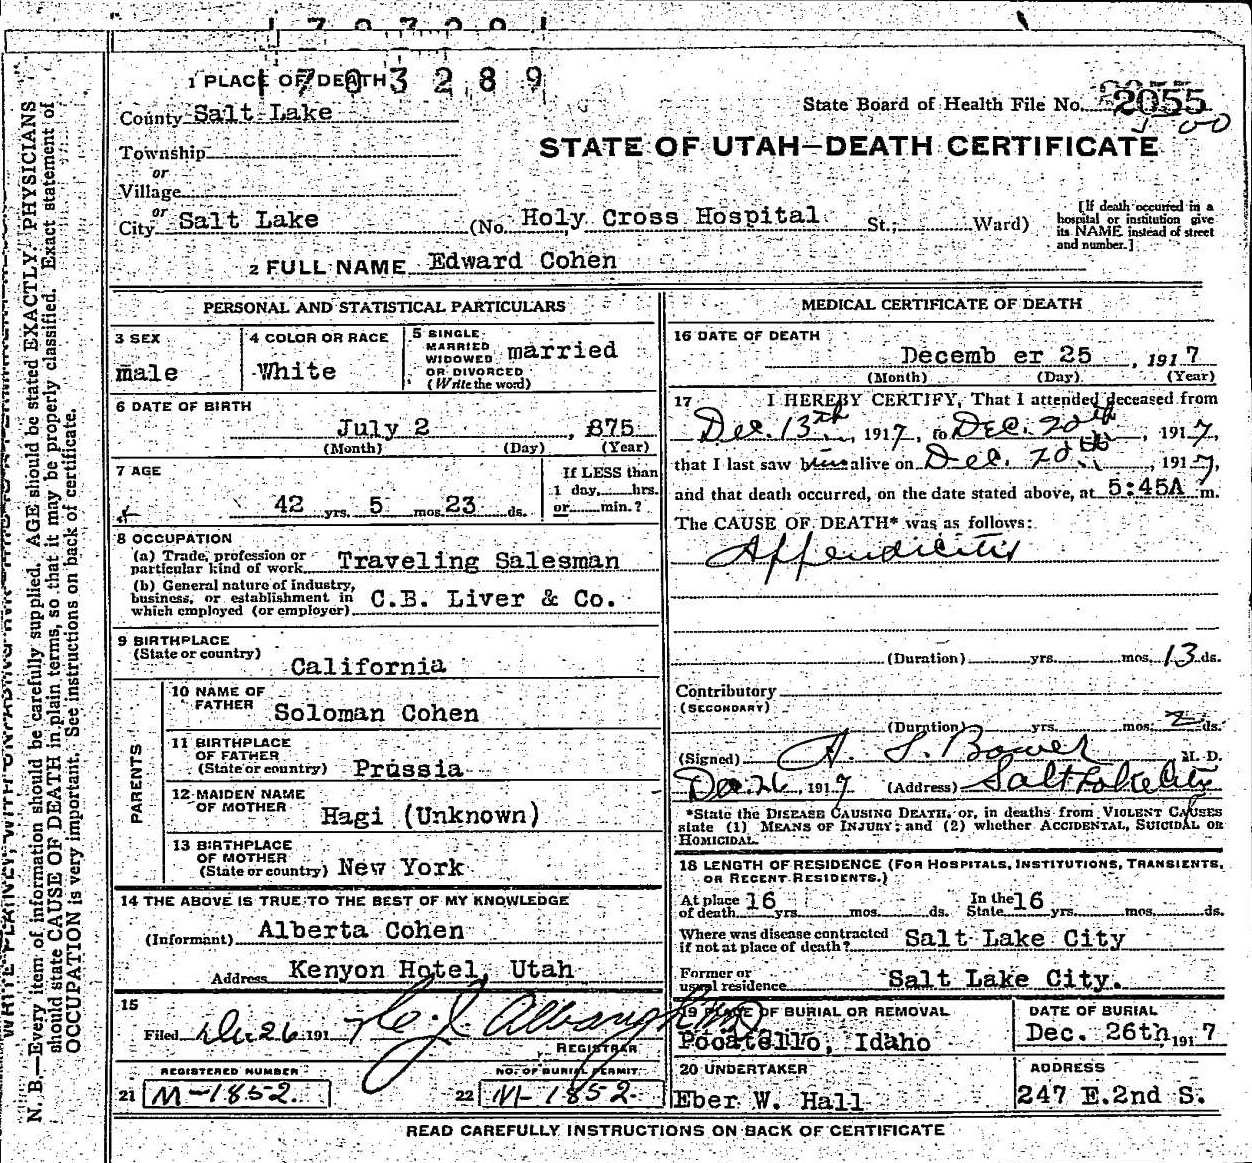 1703289
1 PLACE OF DEATH
County Salt Lake
State Board of Health File No. 2055
STATE OF UTAH—DEATH CERTIFICATE
Township
or
Village
or
City Salt Lake (No. Holy Cross Hospital St.; Ward)
[If death occurred in a
hospital or institution give
its NAME instead of street
and number.]
2 FULL NAME Edward Cohen
PERSONAL AND STATISTICAL PARTICULARS
3 SEX
male
4 COLOR OR RACE
White
5 SINGLE
MARRIED
WIDOWED
OR DIVORCED
(Write the word)
married
6 DATE OF BIRTH
July 2, 875
(Month) (Day) (Year)
7 AGE
42 yrs. 5 mos. 23 ds.
If LESS than
1 day, hrs.
or min.?
8 OCCUPATION
(a) Trade, profession or
particular kind of work Traveling Salesman
(b) General nature of industry,
business, or establishment in
which employed (or employer) C.B. Liver & Co.
9 BIRTHPLACE
(State or country)
California
PARENTS
10 NAME OF
FATHER
Soloman Cohen
11 BIRTHPLACE
OF FATHER
(State or country) Prussia
12 MAIDEN NAME
OF MOTHER
Hagi (Unknown)
13 BIRTHPLACE
OF MOTHER
(State or country) New York
14 THE ABOVE IS TRUE TO THE BEST OF MY KNOWLEDGE
(Informant) Alberta Cohen
Address Kenyon Hotel, Utah
15
Filed Dec 26 191 7
REGISTRAR
REGISTERED NUMBER
21 M-1852.
NO. OF BURIAL PERMIT
22 M-1852.
MEDICAL CERTIFICATE OF DEATH
16 DATE OF DEATH
Decemb er 25, 1917
(Month) (Day) (Year)
17 I HEREBY CERTIFY, That I attended deceased from
Dec. 13th, 1917, to Dec. 20th, 1917,
that I last saw him alive on Dec. 20th, 1917,
and that death occurred, on the date stated above, at 5:45A m.
The CAUSE OF DEATH* was as follows:
Appendicitis
(Duration) yrs. mos. 13 ds.
Contributory
(SECONDARY)
(Duration) yrs. mos. 2 ds.
(Signed) M. D.
Dec. 26, 1917 (Address) Salt Lake City
*State the DISEASE CAUSING DEATH, or, in deaths from VIOLENT CAUSES
state (1) MEANS OF INJURY; and (2) whether ACCIDENTAL, SUICIDAL OR
HOMICIDAL.
18 LENGTH OF RESIDENCE (FOR HOSPITALS, INSTITUTIONS, TRANSIENTS,
OR RECENT RESIDENTS.)
At place
of death 16 yrs. mos. ds.
In the
State 16 yrs. mos. ds.
Where was disease contracted
if not at place of death? Salt Lake City
Former or
usual residence Salt Lake City.
19 PLACE OF BURIAL OR REMOVAL
Pocatello, Idaho
DATE OF BURIAL
Dec. 26th, 1917
20 UNDERTAKER
Eber W. Hall
ADDRESS
247 E.2nd S.
READ CAREFULLY INSTRUCTIONS ON BACK OF CERTIFICATE
N. B.—Every item of information should be carefully supplied. AGE should be stated EXACTLY. PHYSICIANS
should state CAUSE OF DEATH in plain terms, so that it may be properly classified. Exact statement of
OCCUPATION is very important. See instructions on back of certificate.